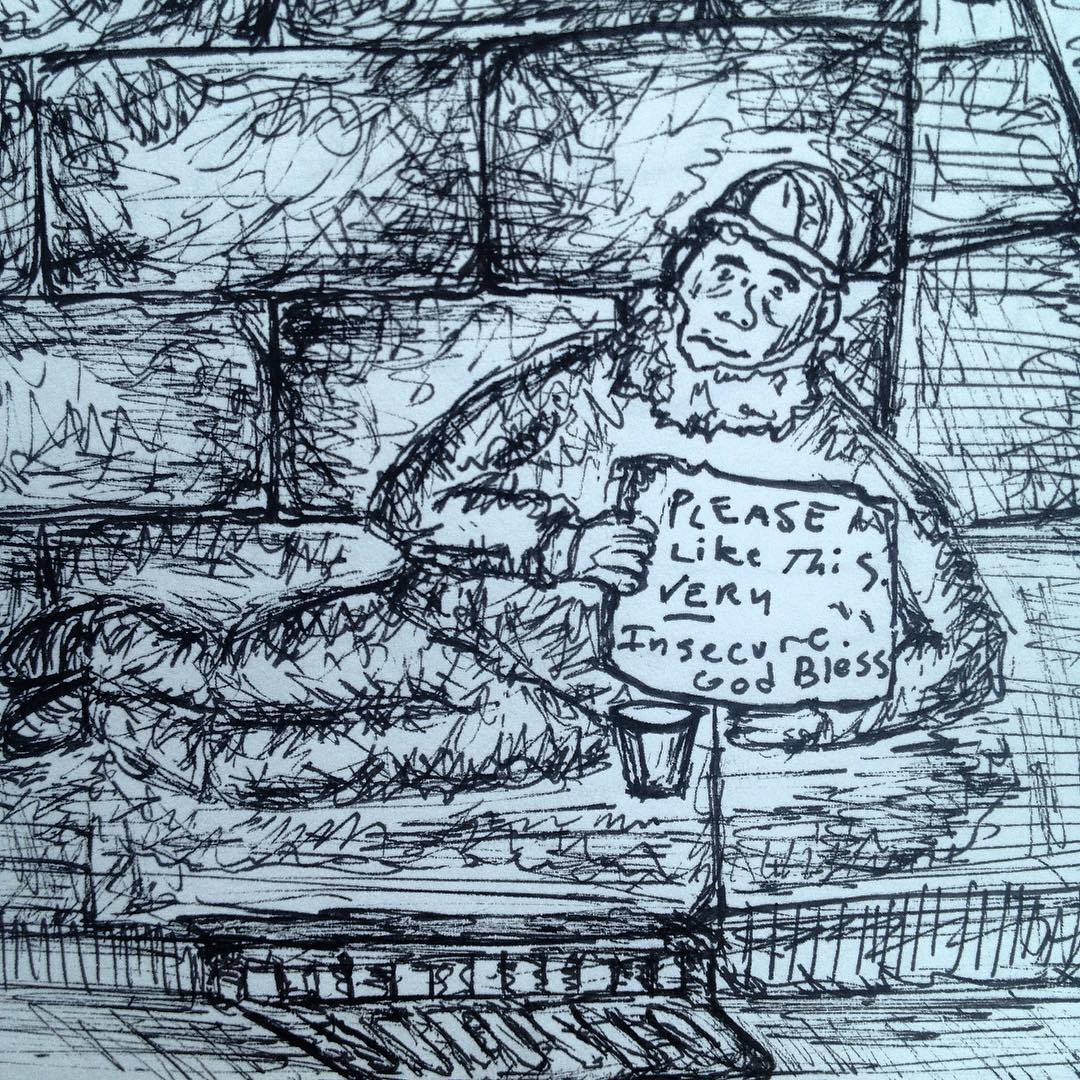 PLEASE
Like This.
VERY
Insecure.
God Bless